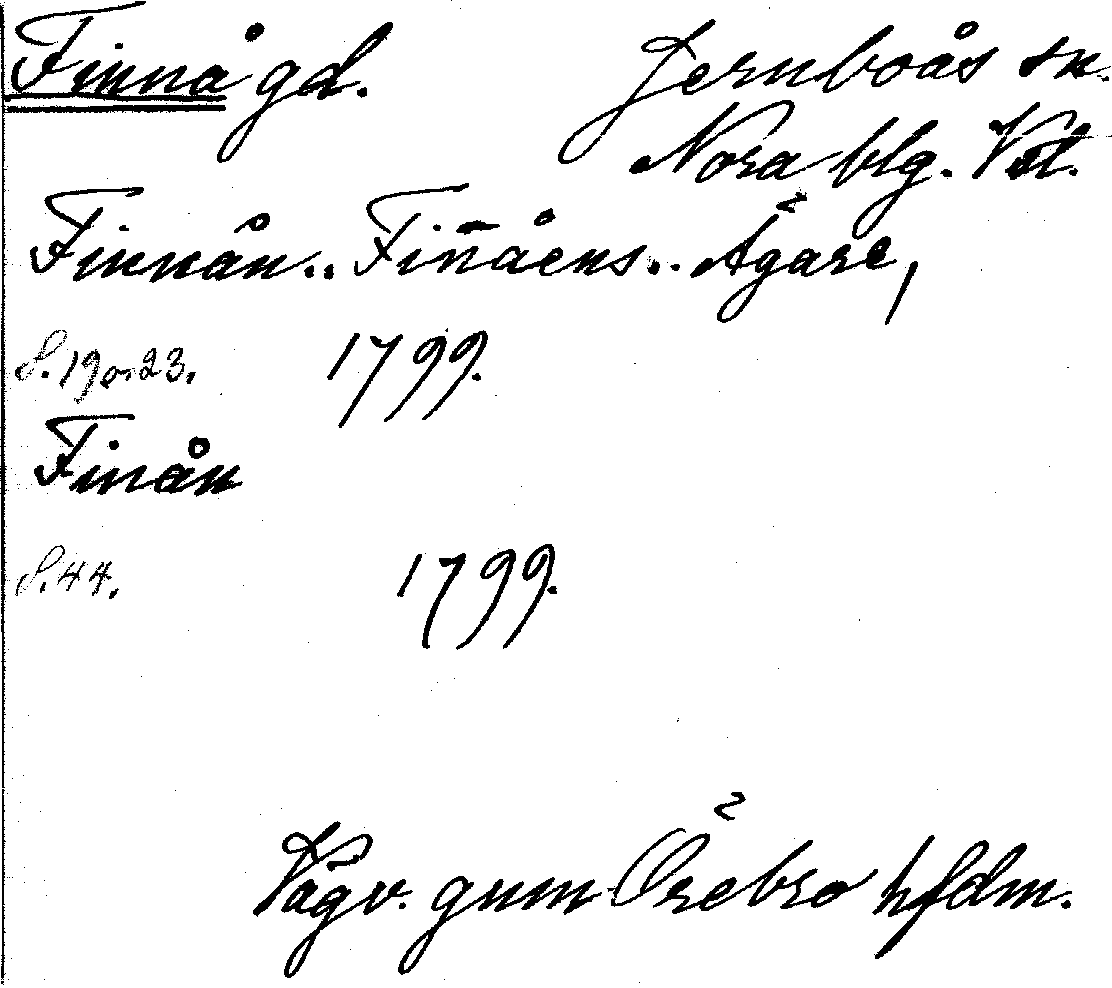 Finnå gd. Jernboås sn.
Nora blg. Vstl.
Finnån.. Fin̄åens.. Ägare,
S. 19 o. 23. 1799.
Finån
S. 44. 1799.
Vägv. gnm Örebro hfdm.